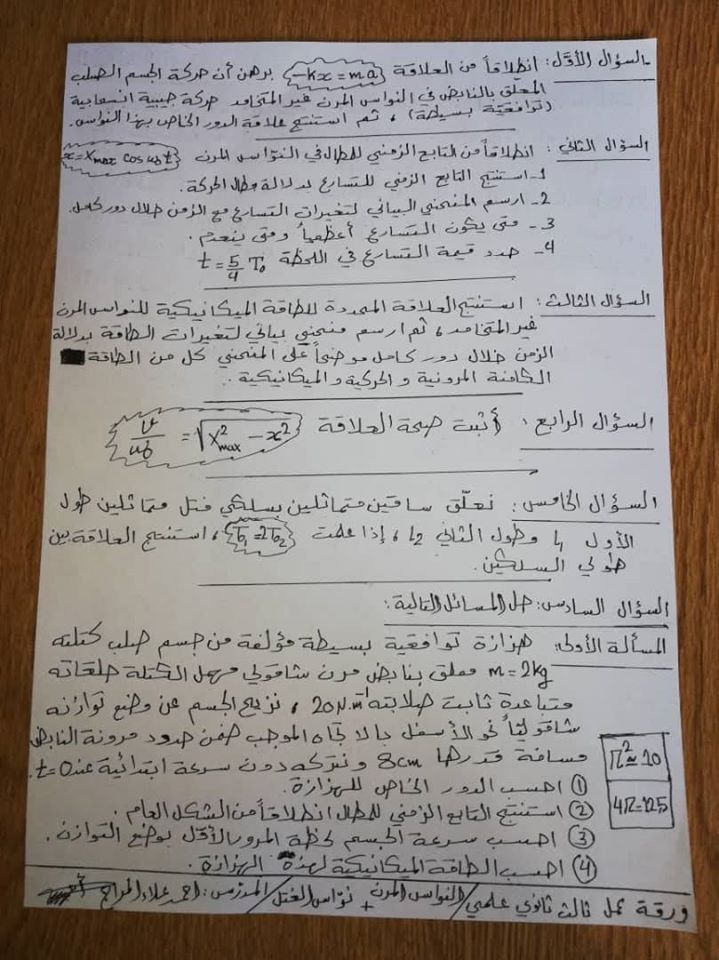 السؤال الأول: انطلاقاً من العلاقة -kx = ma برهن أن حركة الجسم الصلب
المعلق بالنابض في النواس المرن غير المتخامد حركة جيبية انسحابية
(توافقية بسيطة)، ثم استنتج علاقة الدور الخاص بهذا النواس.
السؤال الثاني: انطلاقاً من التابع الزمني للمطال في النواس المرن x = Xmax cos ω₀t
1- استنتج التابع الزمني للتسارع بدلالة مطال الحركة.
2- ارسم المنحني البياني لتغيرات التسارع مع الزمن خلال دور كامل.
3- متى يكون التسارع أعظمياً ومتى ينعدم.
4- حدد قيمة التسارع في اللحظة t = 5/4 T₀
السؤال الثالث: استنتج العلاقة المحددة للطاقة الميكانيكية للنواس المرن
غير المتخامد، ثم ارسم منحني بياني لتغيرات الطاقة بدلالة
الزمن خلال دور كامل موضحاً على المنحني كل من الطاقة
الكامنة المرونية والحركية والميكانيكية.
السؤال الرابع: أثبت صحة العلاقة v/ω₀ = √(X²max - x²)
السؤال الخامس: نعلّق ساقين متماثلين بسلكي فتل متماثلين طول
الأول L₁ وطول الثاني L₂، إذا علمت T₀₁ = 2T₀₂، استنتج العلاقة بين
طولي السلكين.
السؤال السادس: حل المسائل التالية:
المسألة الأولى: هزازة توافقية بسيطة مؤلفة من جسم صلب كتلته
m = 2kg معلق بنابض مرن شاقولي مهمل الكتلة حلقاته
متباعدة ثابت صلابته 20 N.m⁻¹، نزيح الجسم عن وضع توازنه
شاقولياً نحو الأسفل بالاتجاه الموجب ضمن حدود مرونة النابض
مسافة قدرها 8cm ونتركه دون سرعة ابتدائية عند t=0.
π² ≈ 10
4π = 12,5
① احسب الدور الخاص للهزازة.
② استنتج التابع الزمني للمطال انطلاقاً من الشكل العام.
③ احسب سرعة الجسم لحظة المرور الأول بوضع التوازن.
④ احسب الطاقة الميكانيكية لهذه الهزازة.
ورقة عمل ثالث ثانوي علمي/النواس المرن + نواس الفتل/المدرّس: احمد علاء